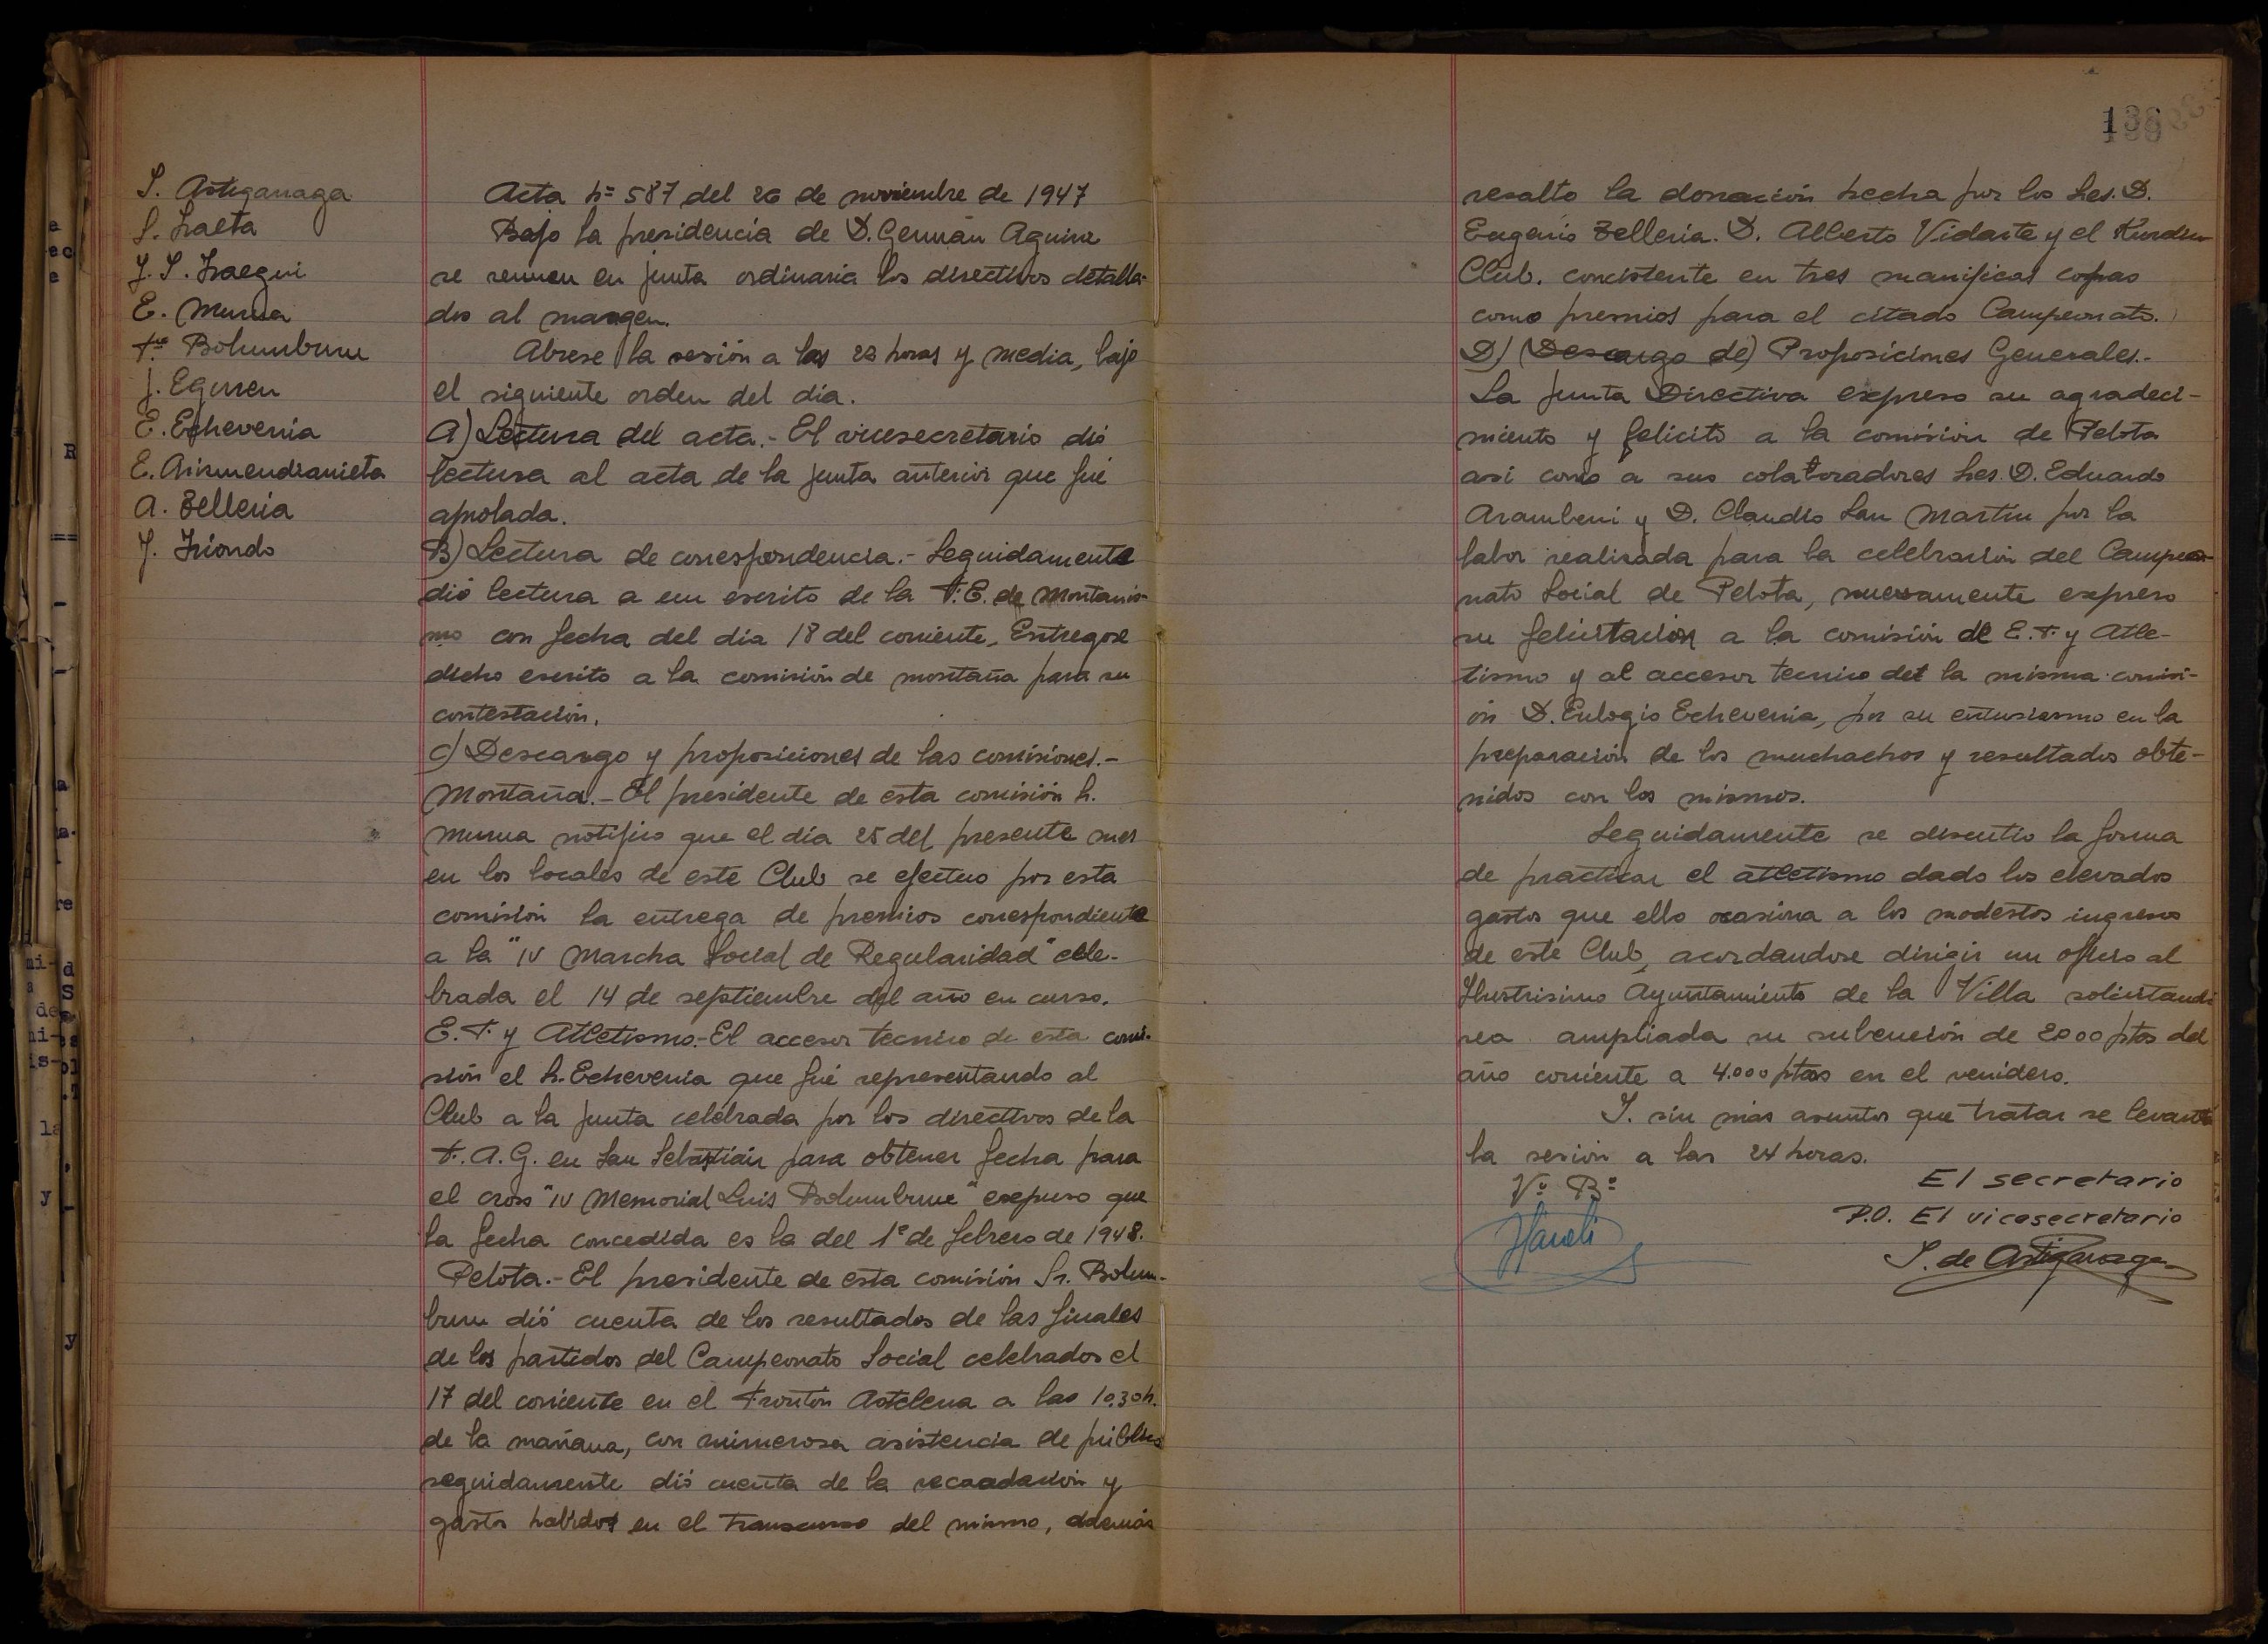 S. Astigarraga
S. Iraeta
J. S. Iraegui
E. Murua
Fco Bolumburu
J. Eguren
E. Echeverria
E. Arizmendiarrieta
A. Zelleria
J. Iriondo
Acta nº 587 del 26 de noviembre de 1947
Bajo la presidencia de D. Germán Aguirre
se reunen en junta ordinaria los directivos detalla-
dos al margen.
Abrese la sesión a las 22 horas y media, bajo
el siguiente orden del dia.
A) Lectura del acta.- El vicesecretario dió
lectura al acta de la junta anterior que fué
aprobada.
B) Lectura de correspondencia.- Seguidamente
dió lectura a un escrito de la F. E. de Montañis-
mo con fecha del dia 18 del corriente. Entregose
dicho escrito a la comisión de montaña para su
contestación.
C) Descargo y proposiciones de las comisiones.-
Montaña.- El presidente de esta comisión Sr.
Murua notifico que el día 25 del presente mes
en los locales de este Club se efectuo por esta
comisión la entrega de premios correspondiente
a la "IV Marcha Social de Regularidad" cele-
brada el 14 de septiembre del año en curso.
E. F. y Atletismo.- El accesor tecnico de esta comi-
sión el Sr. Echeverria que fué representando al
Club a la junta celebrada por los directivos de la
F. A. G. en San Sebastián para obtener fecha para
el cross "IV Memorial Luis Bolumburu" expuso que
la fecha concedida es la del 1º de febrero de 1948.
Pelota.- El presidente de esta comisión Sr. Bolum-
buru dió cuenta de los resultados de las finales
de los partidos del Campeonato Social celebrados el
17 del corriente en el Frontón Astelena a las 10,30 h.
de la mañana, con numerosa asistencia de público
seguidamente dió cuenta de la recaadación y
gastos habidos en el transcurso del mismo, además
136
resalto la donación hecha por los Sres. D.
Eugenio Zelleria. D. Alberto Vidarte y el Kurdin
Club. concistente en tres manificas copas
como premios para el citado Campeonato.
D) (Descargo de) Proposiciones Generales.-
La Junta Directiva expreso su agradeci-
miento y felicito a la comisión de Pelota
asi como a sus colaboradores Sres. D. Eduardo
Aramberri y D. Claudio San Martin por la
labor realizada para la celebración del Campeo-
nato Social de Pelota, nuevamente expreso
su felicitación a la comisión de E. F. y Atle-
tismo y al accesor tecnico de la misma comisi-
ón D. Eulogio Echeverria, por su entusiasmo en la
preparación de los muchachos y resultados obte-
nidos con los mismos.
Seguidamente se discutio la forma
de practicar el atletismo dado los elevados
gastos que ello ocasiona a los modestos ingresos
de este Club, acordandose dirigir un oficio al
Ilustrisimo Ayuntamiento de la Villa solicitando
sea ampliada su subención de 2000 ptas del
año corriente a 4.000 ptas en el venidero.
Y. sin más asuntos que tratar se levantó
la sesión a las 24 horas.
Vº Bº
El secretario
P.O. El vicesecretario
S. de Astigarraga